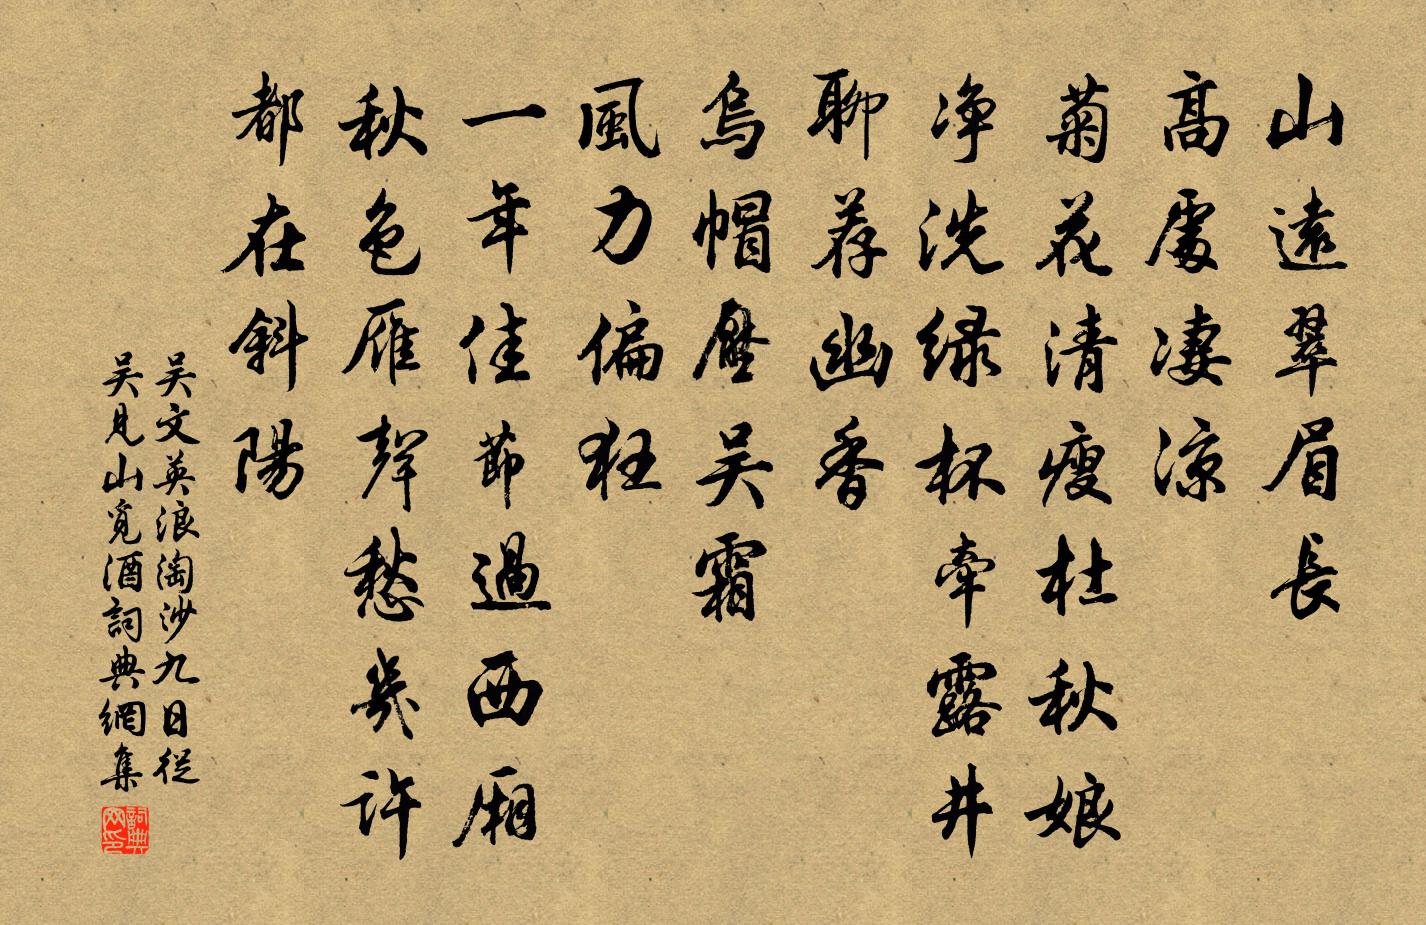 山遠翠眉長
高處凄涼
菊花清瘦杜秋娘
淨洗绿杯牵露井
聊荐幽香
烏帽壓吴霜
風力偏狂
一年佳節過西厢
秋色雁聲愁幾許
都在斜陽
吴文英浪淘沙九日從
吴見山覓酒詞典網集
詞典
网印